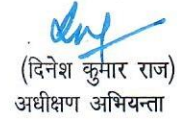 (दिनेश कुमार राज)
अधीक्षण अभियन्ता